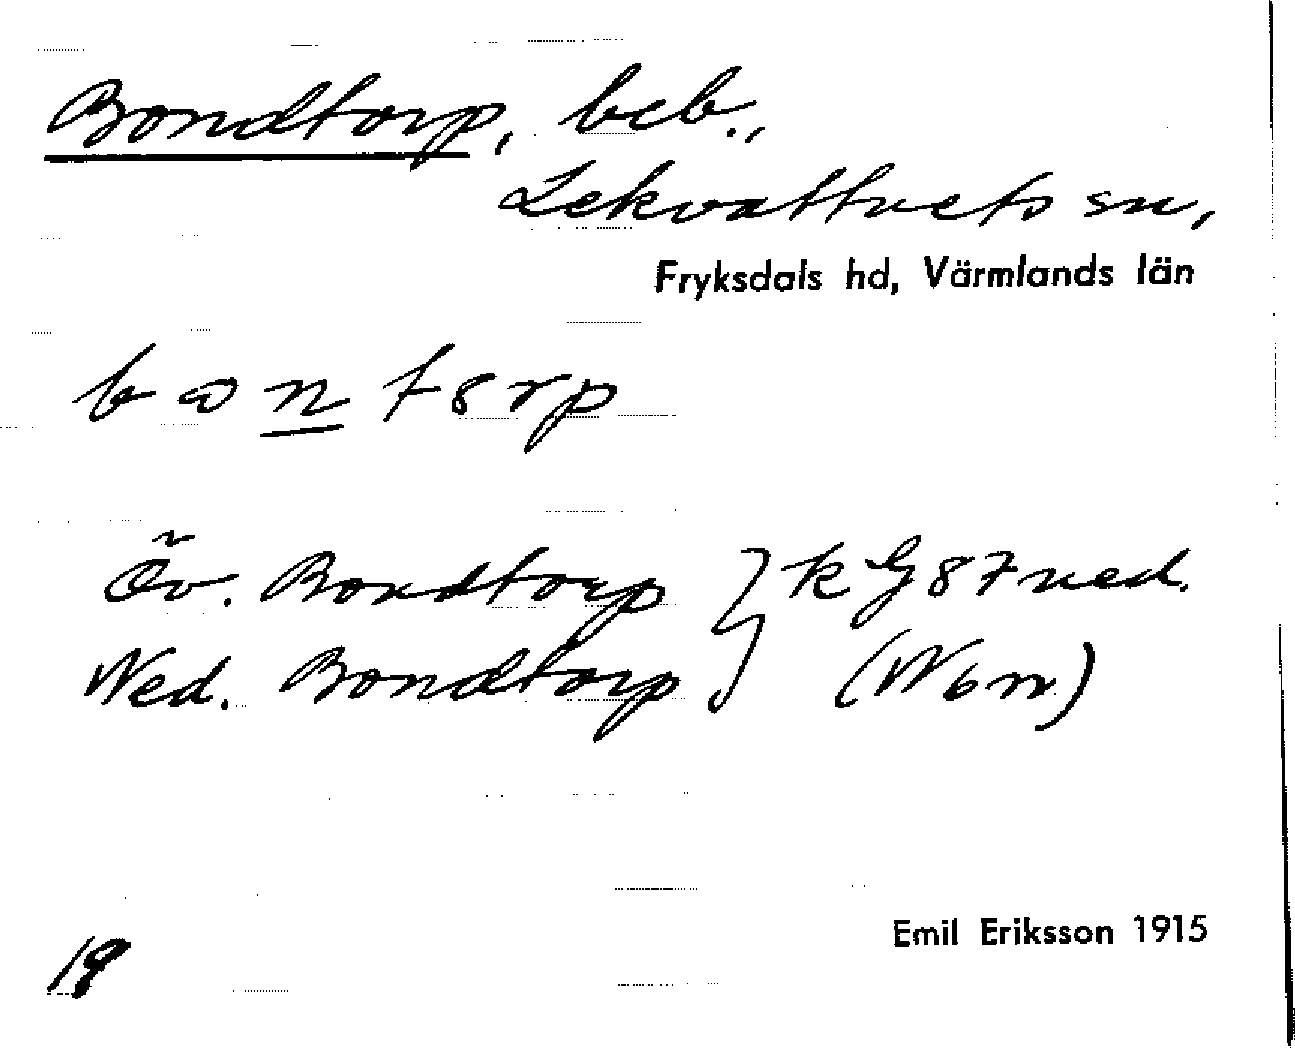 Bondtorp, beb.,
Lekvattnets sn,
Fryksdals hd, Värmlands län
Öv. Bondtorp } k G 87 ned.
Ned. Bondtorp
Emil Eriksson 1915